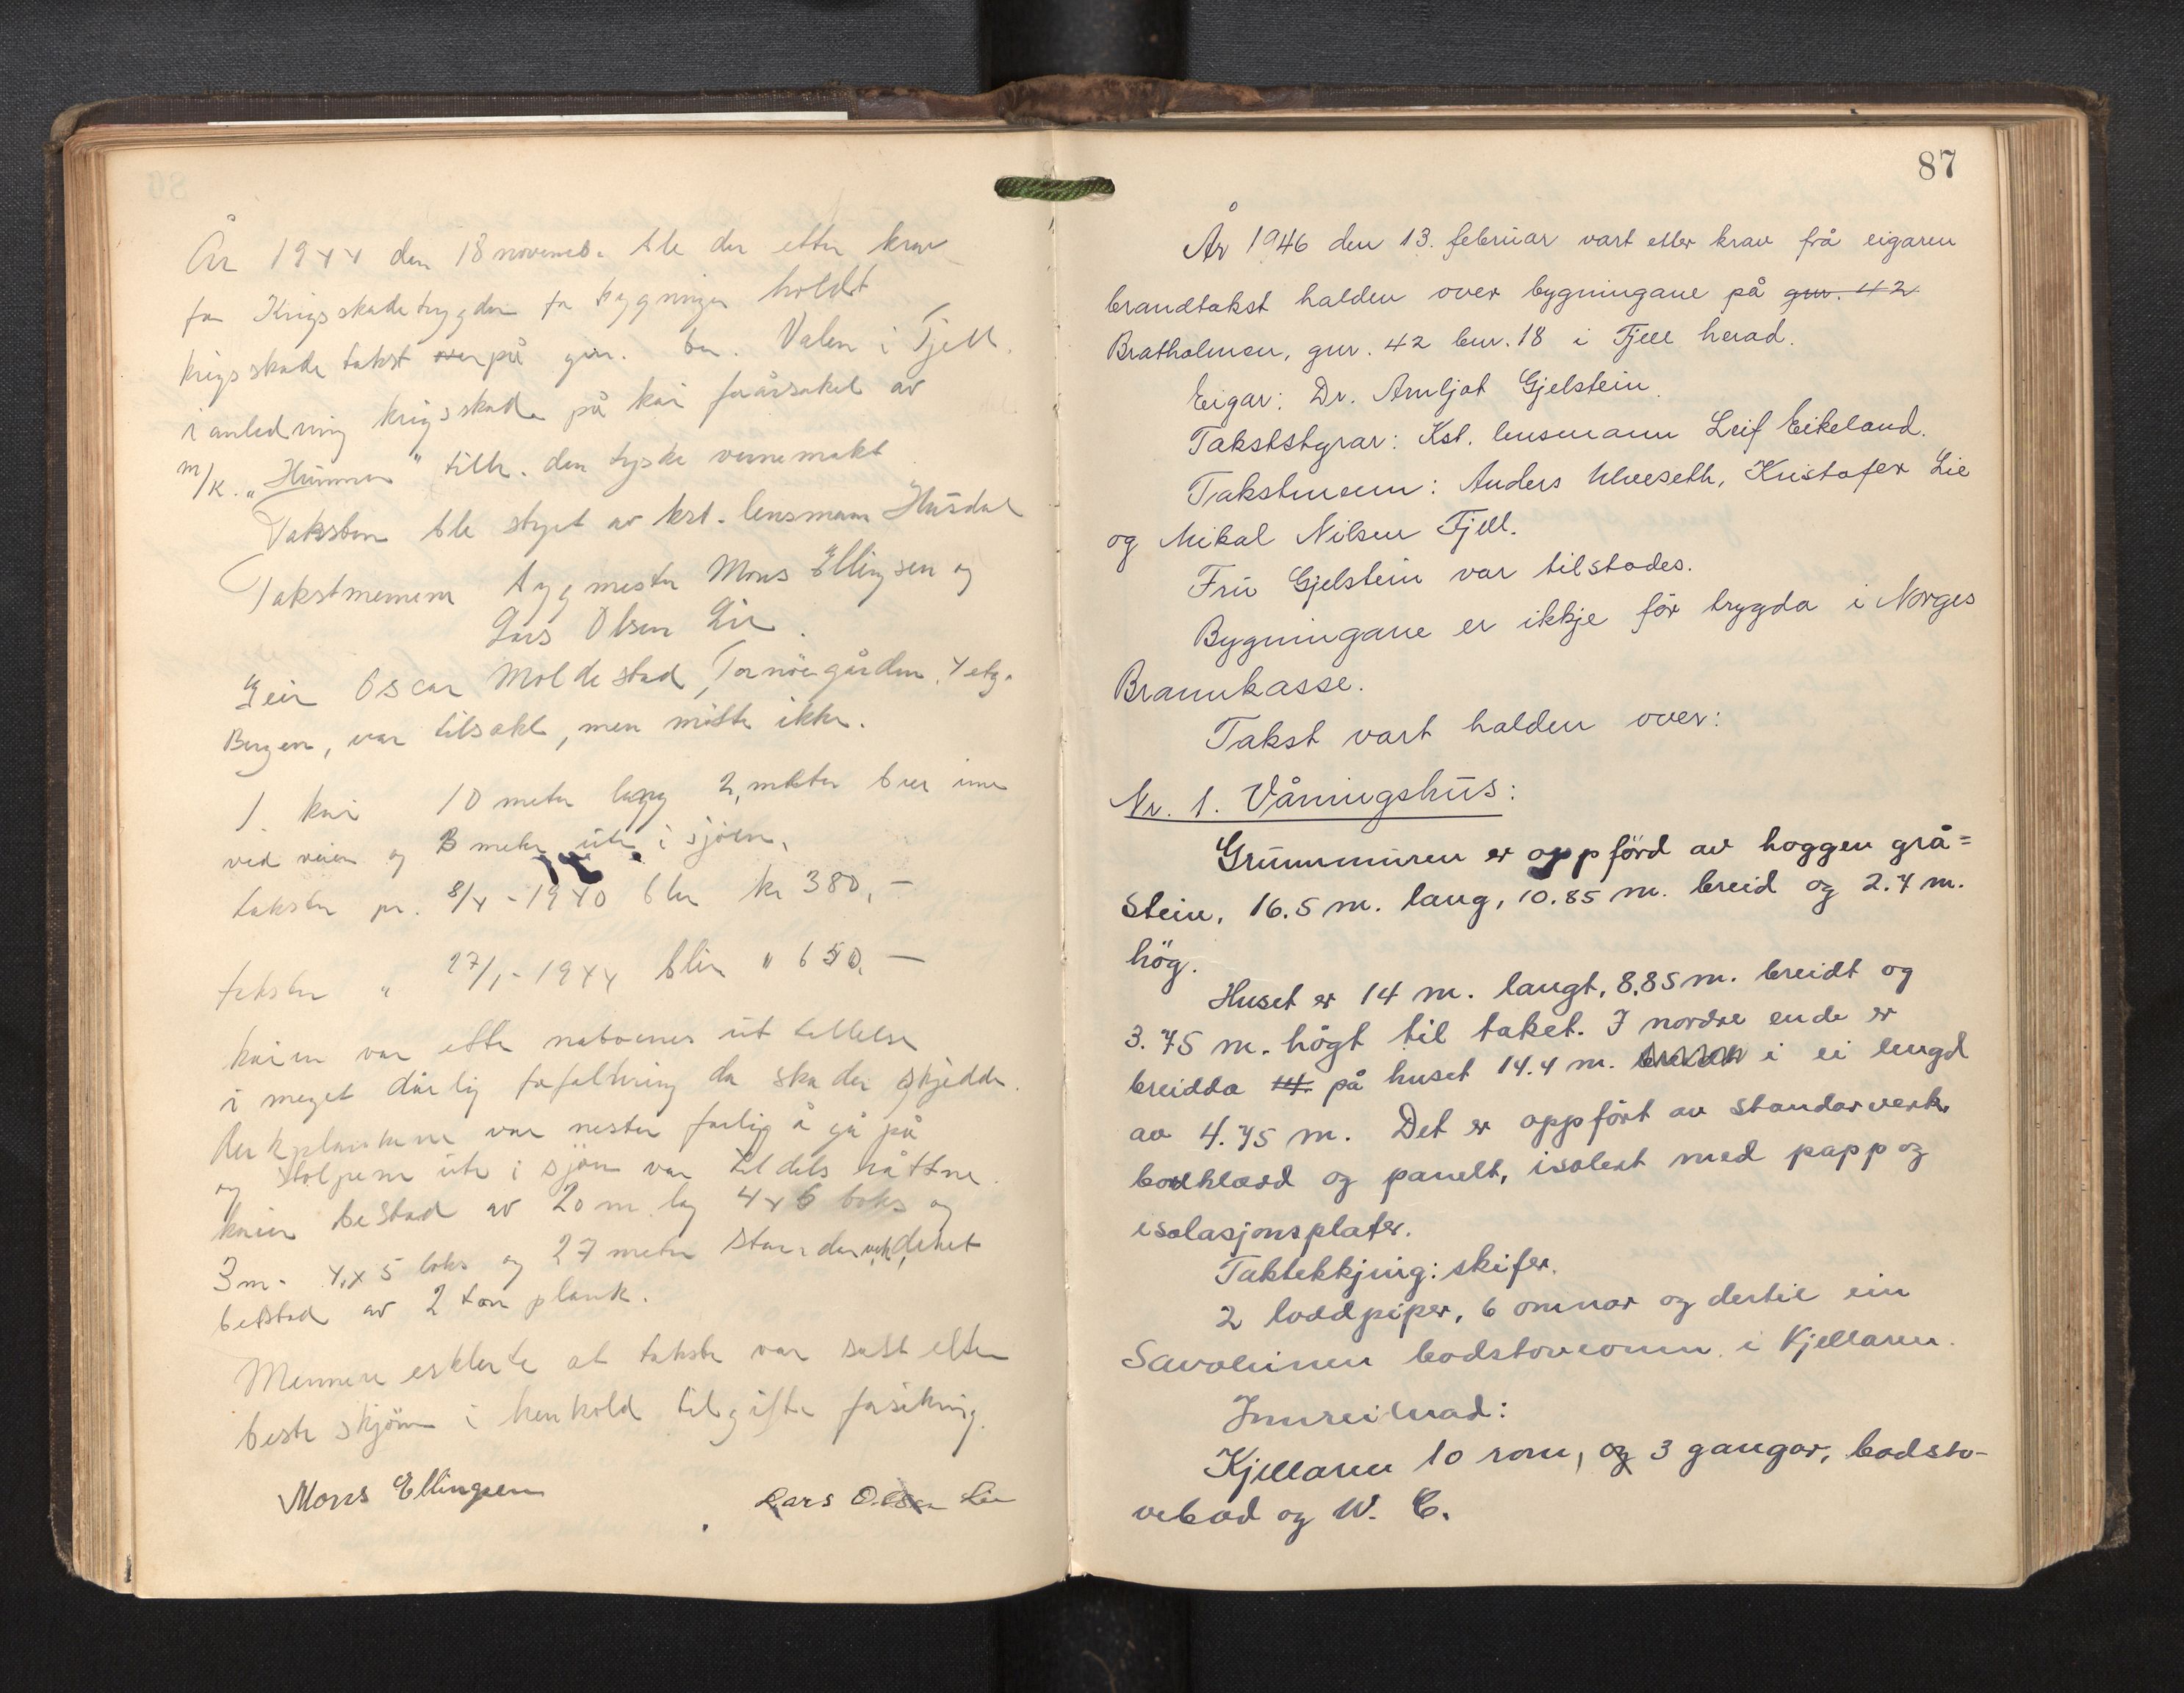 År 1944 den 18 novemb. ble der etter krav
fra Krigsskadetrygden for bygninger holdt
krigsskade takst på gnr. bn. Valen i Fjell
i anledning krigsskade på kai forårsaket av
m/k. „Hummer" tilh. den tyske vernemakt
Taksten ble styret av kst. lensmann Husdal
Takstmennene byggmester Mons Ellingsen og
Lars Olsen Lie.
Eeir Oscar Moldestad, Tornöegården, 4 etg.
Bergen, var tilsakt, men mötte ikke.
1. kai 10 meter lang 2, meter bre inne
ved veien og 3 meter ute i sjöen,
taksten pr. 8/4-1940 blir kr 380,-
taksten " 27/1-1944 blir " 650,-
kaien var etter naboenes ut tellelse
i meget dårlig forfaltning da skaden skjedde.
dekkplankene var nesten farlig å gå på
og stolpene ute i sjöen var til dels råttne.
kaien bestod av 20 m. lag 4x6 boks og
3 m. 4x5 boks og 27 meter stander verk, dekket
bestod av 2 tom plank.
Mennene erklerte at taksten var satt etter
beste skjönn i henhold til gifte forsikring.
Mons Ellingsen Lars Olsen Lie
87
År 1946 den 13. februar vart etter krav frå eigaren
brandtakst halden over bygningane på gnr. 42
Bratholmen, gnr. 42 bnr. 18 i Fjell herad.
Eigar: Dr. Arnljot Gjelstein.
Takststyrar: Kst. lensmann Leif Eikeland.
Takstmenn: Anders Ulveseth, Kristofer Lie
og Mikal Nilsen Fjell.
Fru Gjelstein var tilstades.
Bygningane er ikkje för trygda i Norges
Brannkasse.
Takst vart halden over:
Nr. 1. Våningshus:
Grunnmuren er oppförd av hoggen grå=
stein, 16.5 m. lang, 10.85 m. breid og 2.4 m.
hög.
Huset er 14 m. langt, 8.85 m. breidt og
3.75 m. högt til taket. I nordre ende er
breidda på huset 14.4 m. i ei lengd
av 4.75 m. Det er oppfört av standarverk
bordklædd og panelt, isolert med papp og
isolasjonsplater.
Taktekkjing: skifer.
2 loddpiper, 6 omnar og dertil ein
Savolinen badstoveomn i Kjellaren.
Innreidnad:
Kjellaren 10 rom, og 3 gangar, badsto-
vebad og W. C.